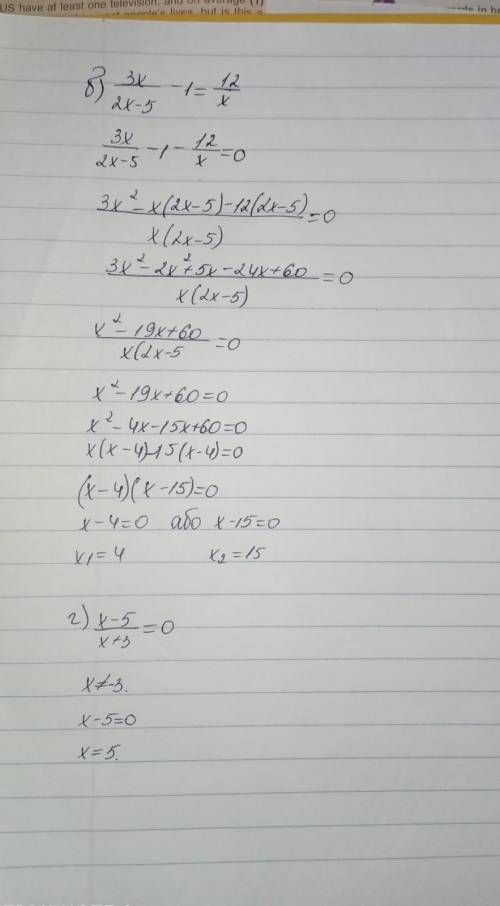 US have at least one television, and on average (1)
people's lives, but is this a
б) 3x/(2x-5) -1= 12/x
3x/(2x-5) -1- 12/x =0
(3x²-x(2x-5)-12(2x-5))/(x(2x-5)) =0
(3x²-2x²+5x-24x+60)/(x(2x-5)) =0
(x²-19x+60)/(x(2x-5) =0
x²-19x+60=0
x²-4x-15x+60=0
x(x-4)-15(x-4)=0
(x-4)(x-15)=0
x-4=0 або x-15=0
x₁=4 x₂=15
г) (x-5)/(x+3) =0
x≠-3.
x-5=0
x=5.